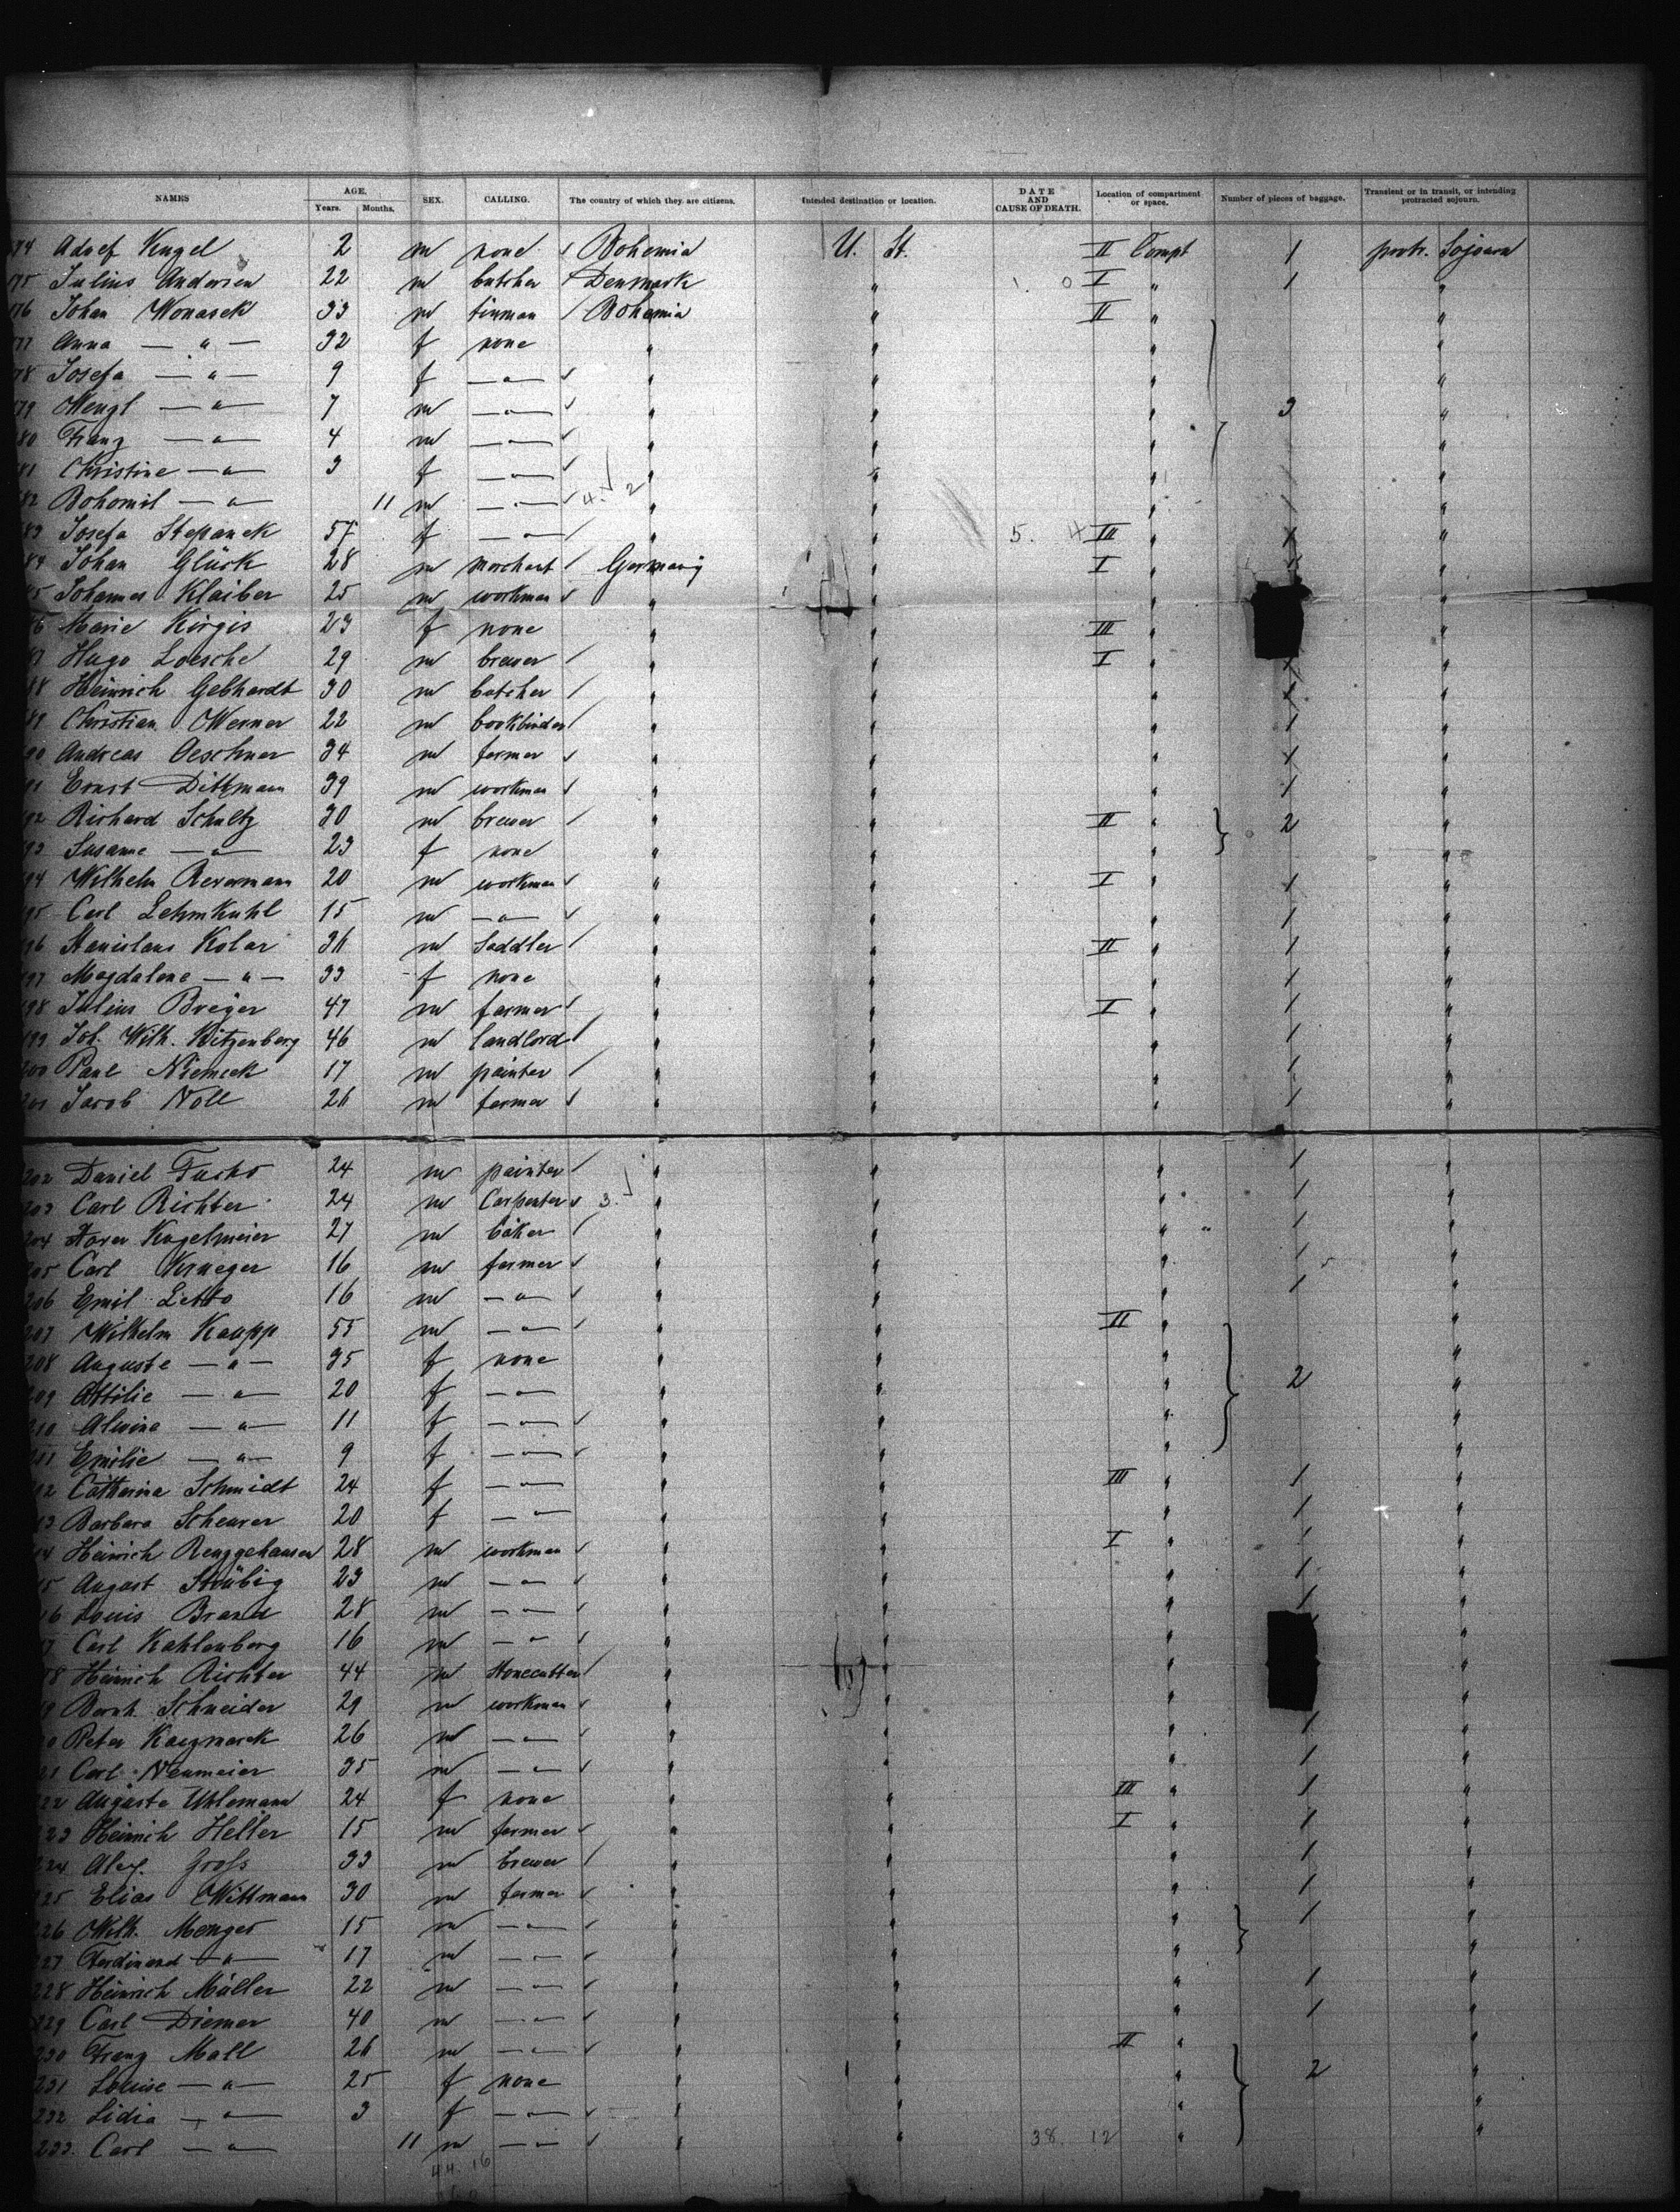 NAMES AGE. Years. Months. SEX. CALLING. The country of which they are citizens. Intended destination or location. DATE AND CAUSE OF DEATH. Location of compartment or space. Number of pieces of baggage. Transient or in transit, or intending protracted sojourn.
74 Kugel 2 m none Bohemia U. St. II Compt 1 protr. Sojourn
175 Julius Andersen 22 m butcher Denmark " 1. 0 I " 1 "
176 Johan Wonasek 33 m tinman Bohemia " II " "
77 Anna — " — 32 f none " " " "
78 Josefa — " — 9 f — " — " " " "
179 Wenzl — " — 7 m — " — " " " 3 "
180 Franz — " — 4 m — " — " " " "
81 Christine — " — 3 f — " — " " " "
82 Bohomil — " — 11 m — " — 4. 2 " " " "
83 Josefa Stepanek 57 f — " — " 5. 4 III " 1 "
84 Johan Glück 28 m merchant Germany " I " 1 "
85 Johannes Klaiber 25 m workman " " " "
86 Marie Kirgis 23 f none " " III " "
87 Hugo Loesche 29 m brewer " " I " 1 "
88 Heinrich Gebhardt 30 m butcher " " " 1 "
89 Christian Werner 22 m bookbinder " " " 1 "
90 Andreas Oeschner 34 m farmer " " " 1 "
91 Ernst Dittmann 39 m workman " " " 1 "
92 Richard Schultz 30 m brewer " " II " 2 "
93 Susanne — " — 23 f none " " " "
194 Wilhelm Revermann 20 m workman " " I " 1 "
195 Carl Lehmkuhl 15 m — " — " " " 1 "
196 Stanislaus Kolar 36 m Saddler " " II " 1 "
197 Magdalene — " — 33 f none " " " 1 "
198 Julius Breger 47 m farmer " " I " 1 "
199 Joh. Wilh. Kitzenberg 46 m landlord " " " 1 "
200 Paul Niemeck 17 m painter " " " 1 "
201 Jacob Noll 26 m farmer " " " 1 "
202 Daniel Fuchs 24 m painter " " " 1 "
203 Carl Richter 24 m Carpenter 3. " " " 1 "
204 Kugelmeier 27 m baker " " " 1 "
205 Carl Krueger 16 m farmer " " " 1 "
206 Emil Letto 16 m — " — " " " 1 "
207 Wilhelm Kaupp 55 m — " — " " II " "
208 Auguste — " — 35 f none " " " "
209 Ottilie — " — 20 f — " — " " " 2 "
210 Alwine — " — 11 f — " — " " " "
211 Emilie — " — 9 f — " — " " " "
212 Catherina Schmidt 24 f — " — " " III " 1 "
213 Barbara Scheurer 20 f — " — " " " 1 "
214 Heinrich Renggehausen 28 m workman " " I " 1 "
15 August Strübig 23 m — " — " " " 1 "
16 Louis Brand 28 m — " — " " " 1 "
17 Carl Kahlenberg 16 m — " — " " " "
18 Heinrich Richter 44 m Stonecutter " " " "
19 Bernh. Schneider 29 m workman " " " "
20 Peter Kaczmarek 26 m — " — " " " 1 "
21 Carl Neumeier 35 m — " — " " " 1 "
222 Auguste Uhlemann 24 f none " " III " 1 "
223 Heinrich Heller 15 m farmer " " I " 1 "
224 Alex. Groß 33 m brewer " " " 1 "
225 Elias Wittmann 30 m farmer " " " 1 "
226 Wilh. Menges 15 m — " — " " " 1 "
227 Ferdinand — " — 17 m — " — " " " "
228 Heinrich Müller 22 m — " — " " " 1 "
229 Carl Diemer 40 m — " — " " " 1 "
230 Franz Mall 26 m — " — " " II " "
231 Louise — " — 25 f none " " " 2 "
232 Lidia — " — 3 f — " — " " " "
233. Carl — " — 11 m — " — " " 38. 12 " "
44. 16